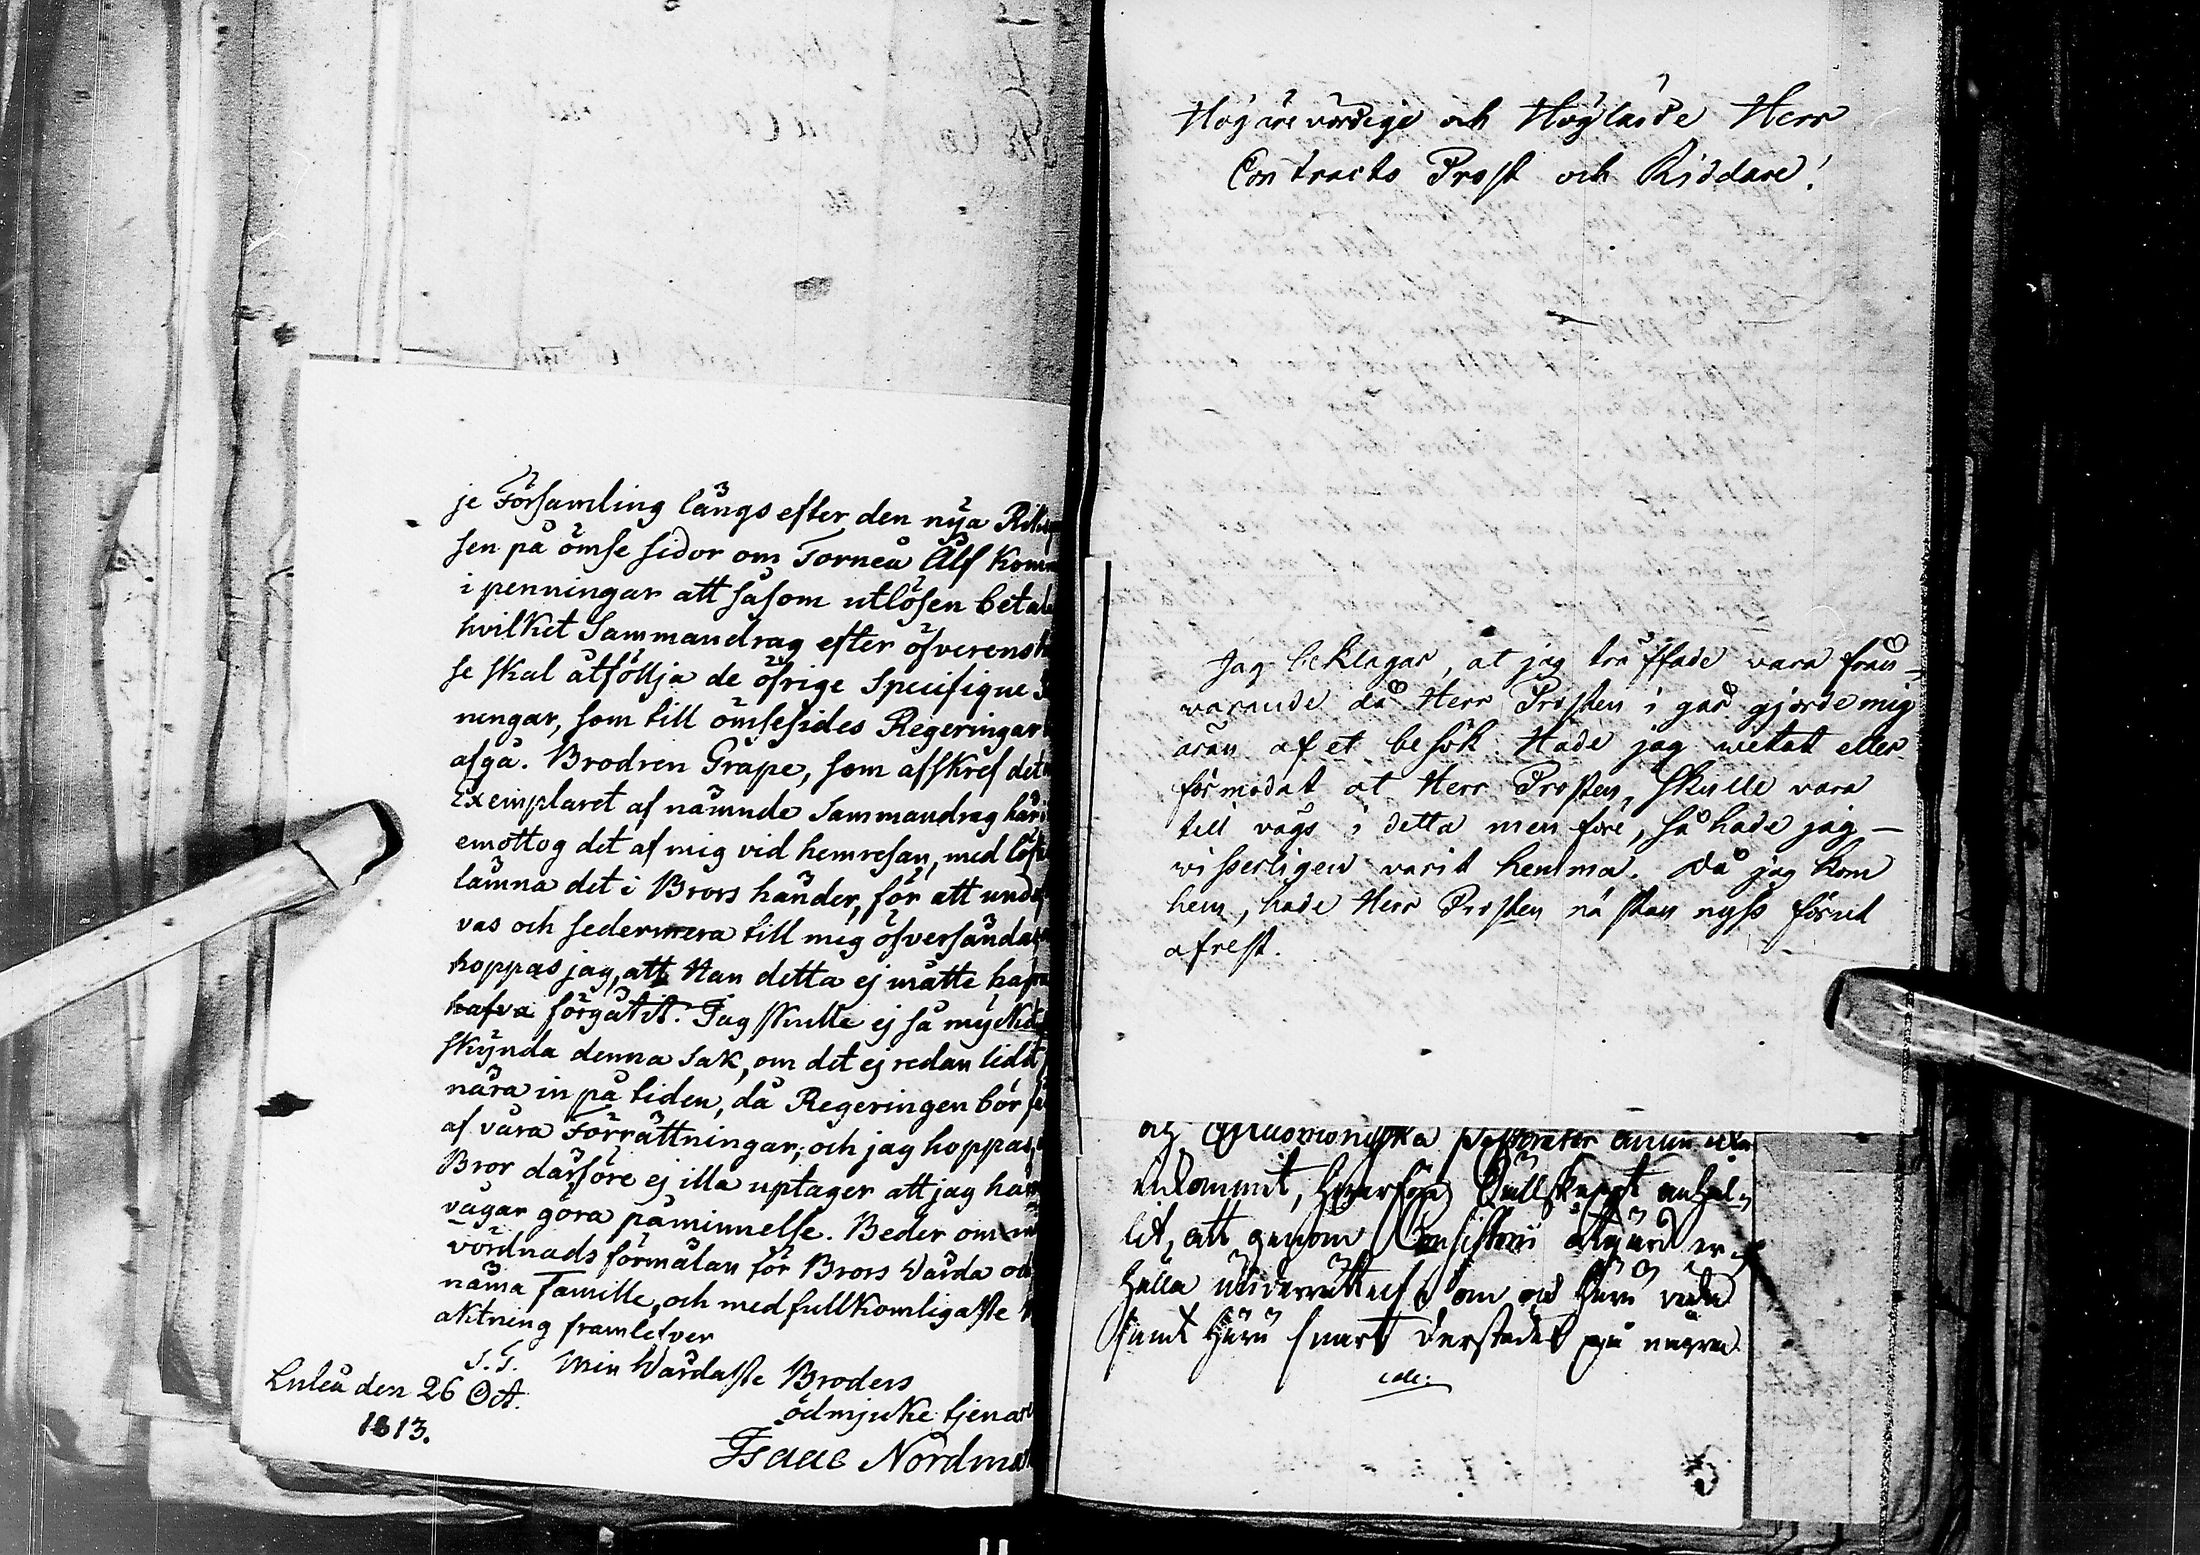 je Församling längs efter den nya Riks
sen på ömse sidor om Torneå Älf Komm
i penningar att såsom utlösen betala
hvilket Sammandrag efter öfverensk
se skal åtföllja de öfrige Specifique
ningar, som till ömsesides Regeringar
afgå. Brodren Grape, som afskref det
Exemplaret af nämnde Sammandrag här
emottog det af mig vid hemresan, med löft
lämna det i Brors händer, för att unders
vas och sedermera till mig öfversändas
hoppas jag, att Han detta ej måtte hafva
hafva förgätit. Jag skulle ej så mycket
skynda denna sak, om det ej redan lidit
nära in på tiden, då Regeringen bör få
af våra Förrättningar; och jag hoppas,
Bror därföre ej illa uptager att jag här
vågar göra påminnelse. Beder om min
vördnads förmälan för Brors Värda och
näma Famille, och med fullkomligaste
aktning framlefver
S. T. Min Värdaste Broders
Luleå den 26 Oct. ödmjuke tjenare
1813. Isaac Nordman
Högärevördige och Höglärde Herr
Contracts Prost och Riddare!
Jag beklagar, at jag träffade vara från-
varande då Herr Prosten i går gjorde mig
äran af et besök. Hade jag wetat eller
förmodat at Herr Prosten, skulle vara
till vägs i detta men före, så hade jag —
visserligen varit hemma. Då jag kom
hem, hade Herr Prosten nästan nyss förut
afrest.
inkommit, hvarföre Sällskapet anhål-
lit, att genom Consistorii åtgärd er-
hålla underrättelse om och huru vida
samt huru snart derstädes på några